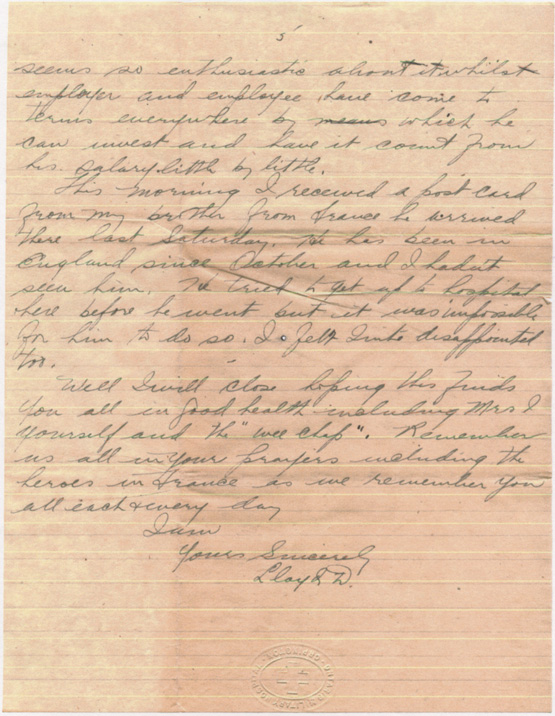 5
seems so enthusiastic about it whilst
employer and employee have come to
terms everywhere by means which he
can invest and have it count from
his salary little by little.
This morning I received a post card
from my brother from France he arrived
there last Saturday. He has been in
England since October and I hadn't
seen him. He tried to get up to hospital
here before he went but it was impossible
for him to do so. I felt quite disappointed
too.
Well I will close hoping this finds
you all in good health including Mrs I
yourself and the "wee chap". Remember
us all in your prayers including the
heroes in France as we remember you
all each & every day
I am
Yours Sincerely
Lloyd D.
ONTARIO MILITARY HOSPITAL
ORPINGTON